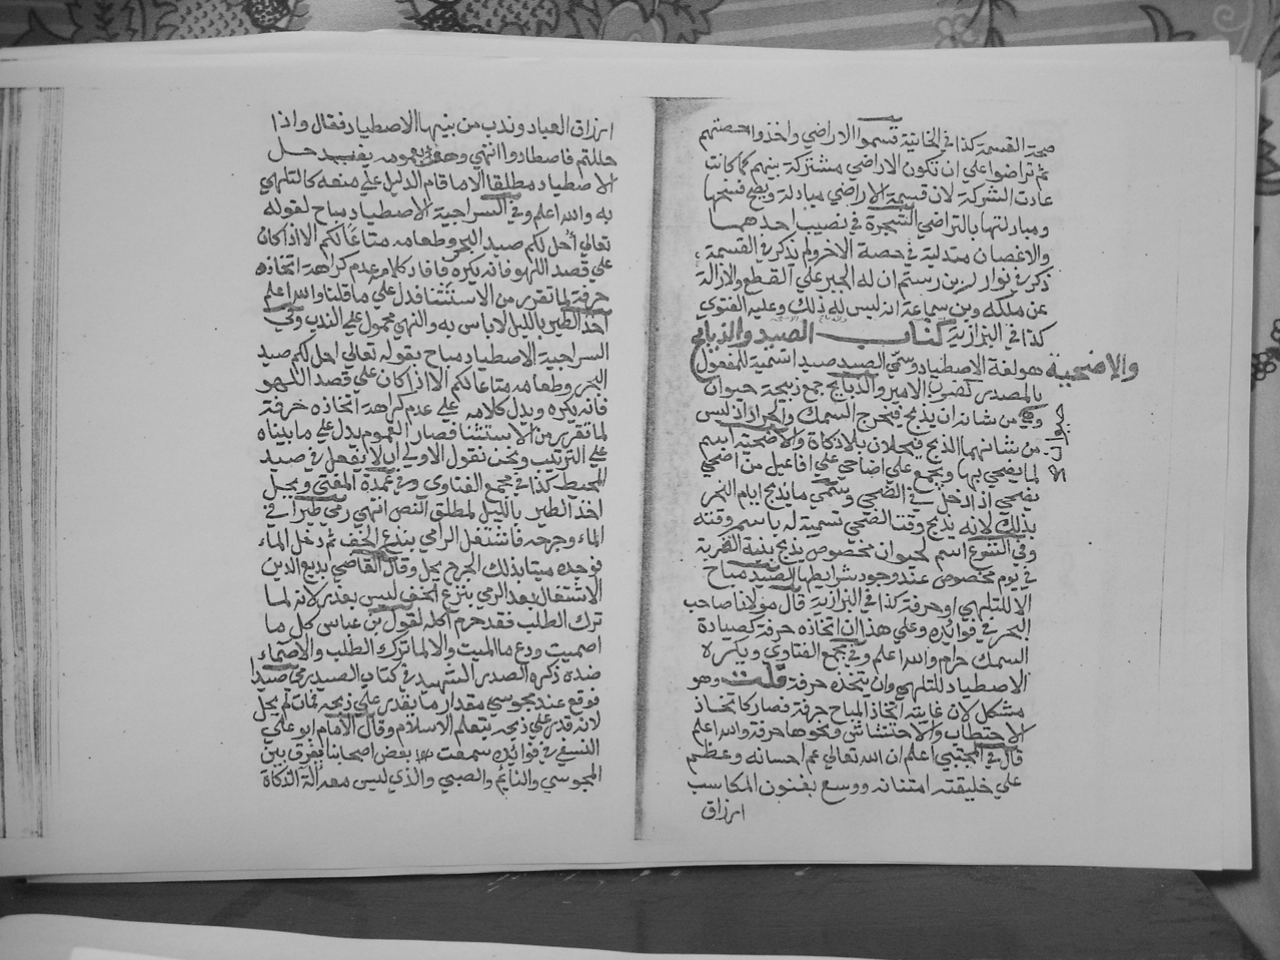 صحة القسمة كذا في الخانية قسموا الاراضي واخذوا حصتهم
ثم تراضوا على ان تكون الاراضي مشتركة بينهم كما كانت
عادت الشركة لان قسمة الاراضي مبادلة ويصح فسخها
ومبادلتها بالتراضي الشجرة في نصيب احدهما
والاغصان متدلية في حصة الاخر ولم يذكر في القسمة
ذكر في نوادر بن رستم ان له الجبر علي القطع والازالة
عن ملكه وبن سماعة انه ليس له ذلك وعليه الفتوي
كذا في البزازية كتاب الصيد والذبايح
والاضحية هو لغة الاصطياد وسمي الصيد صيدا تسمية للمفعول
بالمصدر كضرب الامير والذبايح جمع ذبيحة حيوان
من شانه ان يذبح فتخرج السمك والجراد اذ ليس
من شانهما الذبح فيحلان بلا ذكاة والاضحية اسم
لما يضحي بها ويجمع علي اضاحي علي افاعيل من اضحي
يضحي اذا دخل في الضحي وسمي ما يذبح ايام النحر
بذلك لانه يذبح وقت الضحي تسمية له باسم وقته
وفي الشرع اسم لحيوان مخصوص يذبح بنية القربة
في يوم مخصوص عند وجود شرايطها الصيد مباح
الا للتلهي او حرفة كذا في البزازية قال مولانا صاحب
البحر في فوائده وعلي هذا ان اتخاذه حرفة كصيادة
السمك حرام والله اعلم وفي مجمع الفتاوي ويكره
الاصطياد للتلهي وان يتخذه حرفة قلت وهو
مشكل لان غايته اتخاذ المباح حرفة فصار كاتخاذ
الاحتطاب والاحتشاش ونحوها حرفة والله اعلم
قال في المجتبي اعلم ان الله تعالي عم احسانه وعظم
علي خليقته امتنانه ووسع بفنون المكاسب
ارزاق
ارزاق العباد وندب من بينها الاصطياد فقال واذا
حللتم فاصطادوا انتهي وهو بعمومه يفيد حل
الاصطياد مطلقا الا ما قام الدليل علي منعه كالتلهي
به والله اعلم وفي السراجية الاصطياد مباح لقوله
تعالي أحل لكم صيد البحر وطعامه متاعا لكم الا اذا كان
علي قصد اللهو فانه يكره فافاد كلامه عدم كراهة اتخاذه
حرفة لما تقرر من الاستثنا فدل علي ما قلنا والله اعلم
اخذ الطير بالليل لا باس به والنهي محمول علي الندب وفي
السراجية الاصطياد مباح بقوله تعالي احل لكم صيد
البحر وطعامه متاعا لكم الا اذا كان علي قصد اللهو
فانه يكره ويدل كلامه علي عدم كراهة اتخاذه حرفة
لما تقرر من الاستثنا فصار العموم يدل علي ما بيناه
علي الترتيب ونحن نقول الاولي ان لا يفعل في صيد
المحيط كذا في مجمع الفتاوي وفي عمدة المفتي ويحل
اخذ الطير بالليل لمطلق النص انتهي رمي طيرا في
الماء وجرحه فاشتغل الرامي بنزع الخف ثم دخل الماء
فوجده ميتا بذلك الجرح يحل وقال القاضي بديع الدين
الاشتغال بعد الرمي بنزع الخف ليس بعذر لانه لما
ترك الطلب فقد حرم اكله لقول بن عباس كل ما
اصميت ودع ما انميت والانما ترك الطلب والاصماء
ضده ذكره الصدر الشهيد في كتاب الصيد رمي صيدا
فوقع عند مجوسي مقدار ما يقدر علي ذبحه فمات لم يحل
لانه قدر علي ذبحه بتعلم الاسلام وقال الامام ابو علي
النسفي في فوائده سمعت بعض اصحابنا يفرق بين
المجوسي والنايم والصبي والذي ليس معه آلة الذكاة